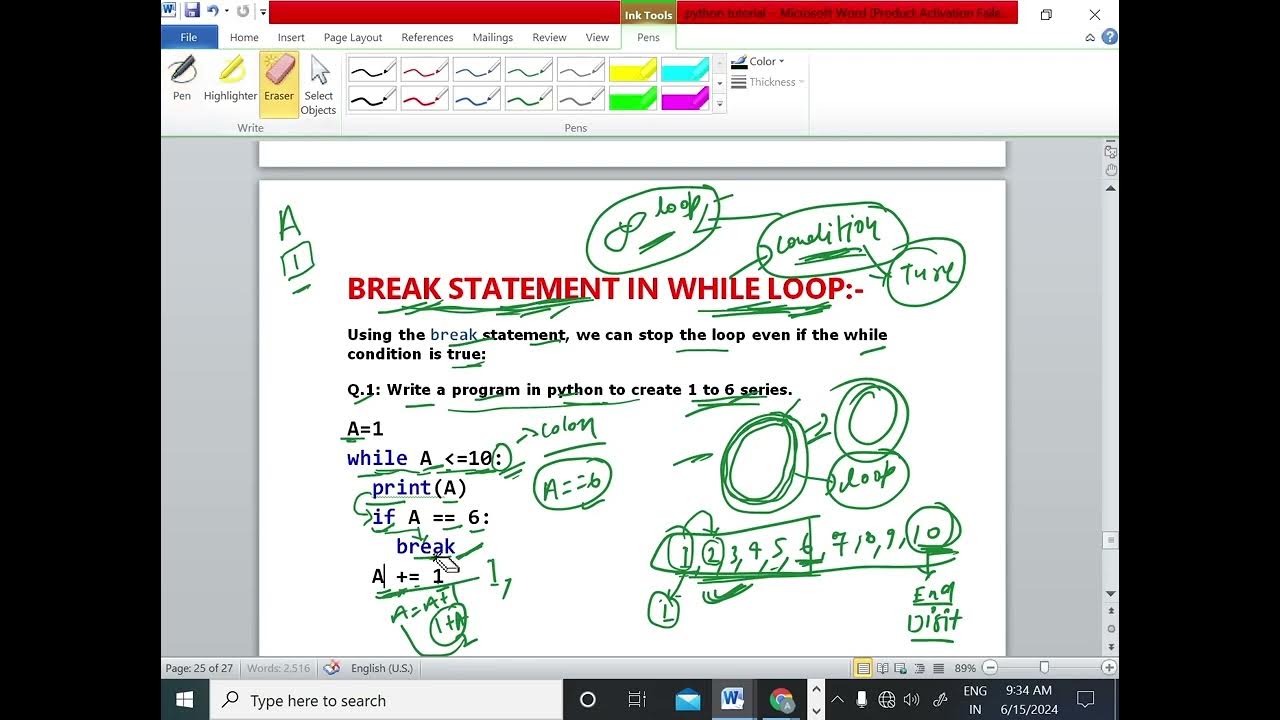 Ink Tools
python tutorial - Microsoft Word [Product Activation Faile...
File Home Insert Page Layout References Mailings Review View Pens
Pen Highlighter Eraser Select Objects
Color
Thickness
Write
Pens
A
1
loop
condition
Ture
BREAK STATEMENT IN WHILE LOOP:-
Using the break statement, we can stop the loop even if the while
condition is true:
Q.1: Write a program in python to create 1 to 6 series.
A=1
colon
while A <=10:
A==6
loop
print(A)
if A == 6:
1, 2, 3, 4, 5, 6, 7, 8, 9, 10
break
A += 1
1,
1
A=A+1
1+A
2
End
Digit
Page: 25 of 27 Words: 2,516 English (U.S.) 89%
Type here to search
ENG
IN
9:34 AM
6/15/2024